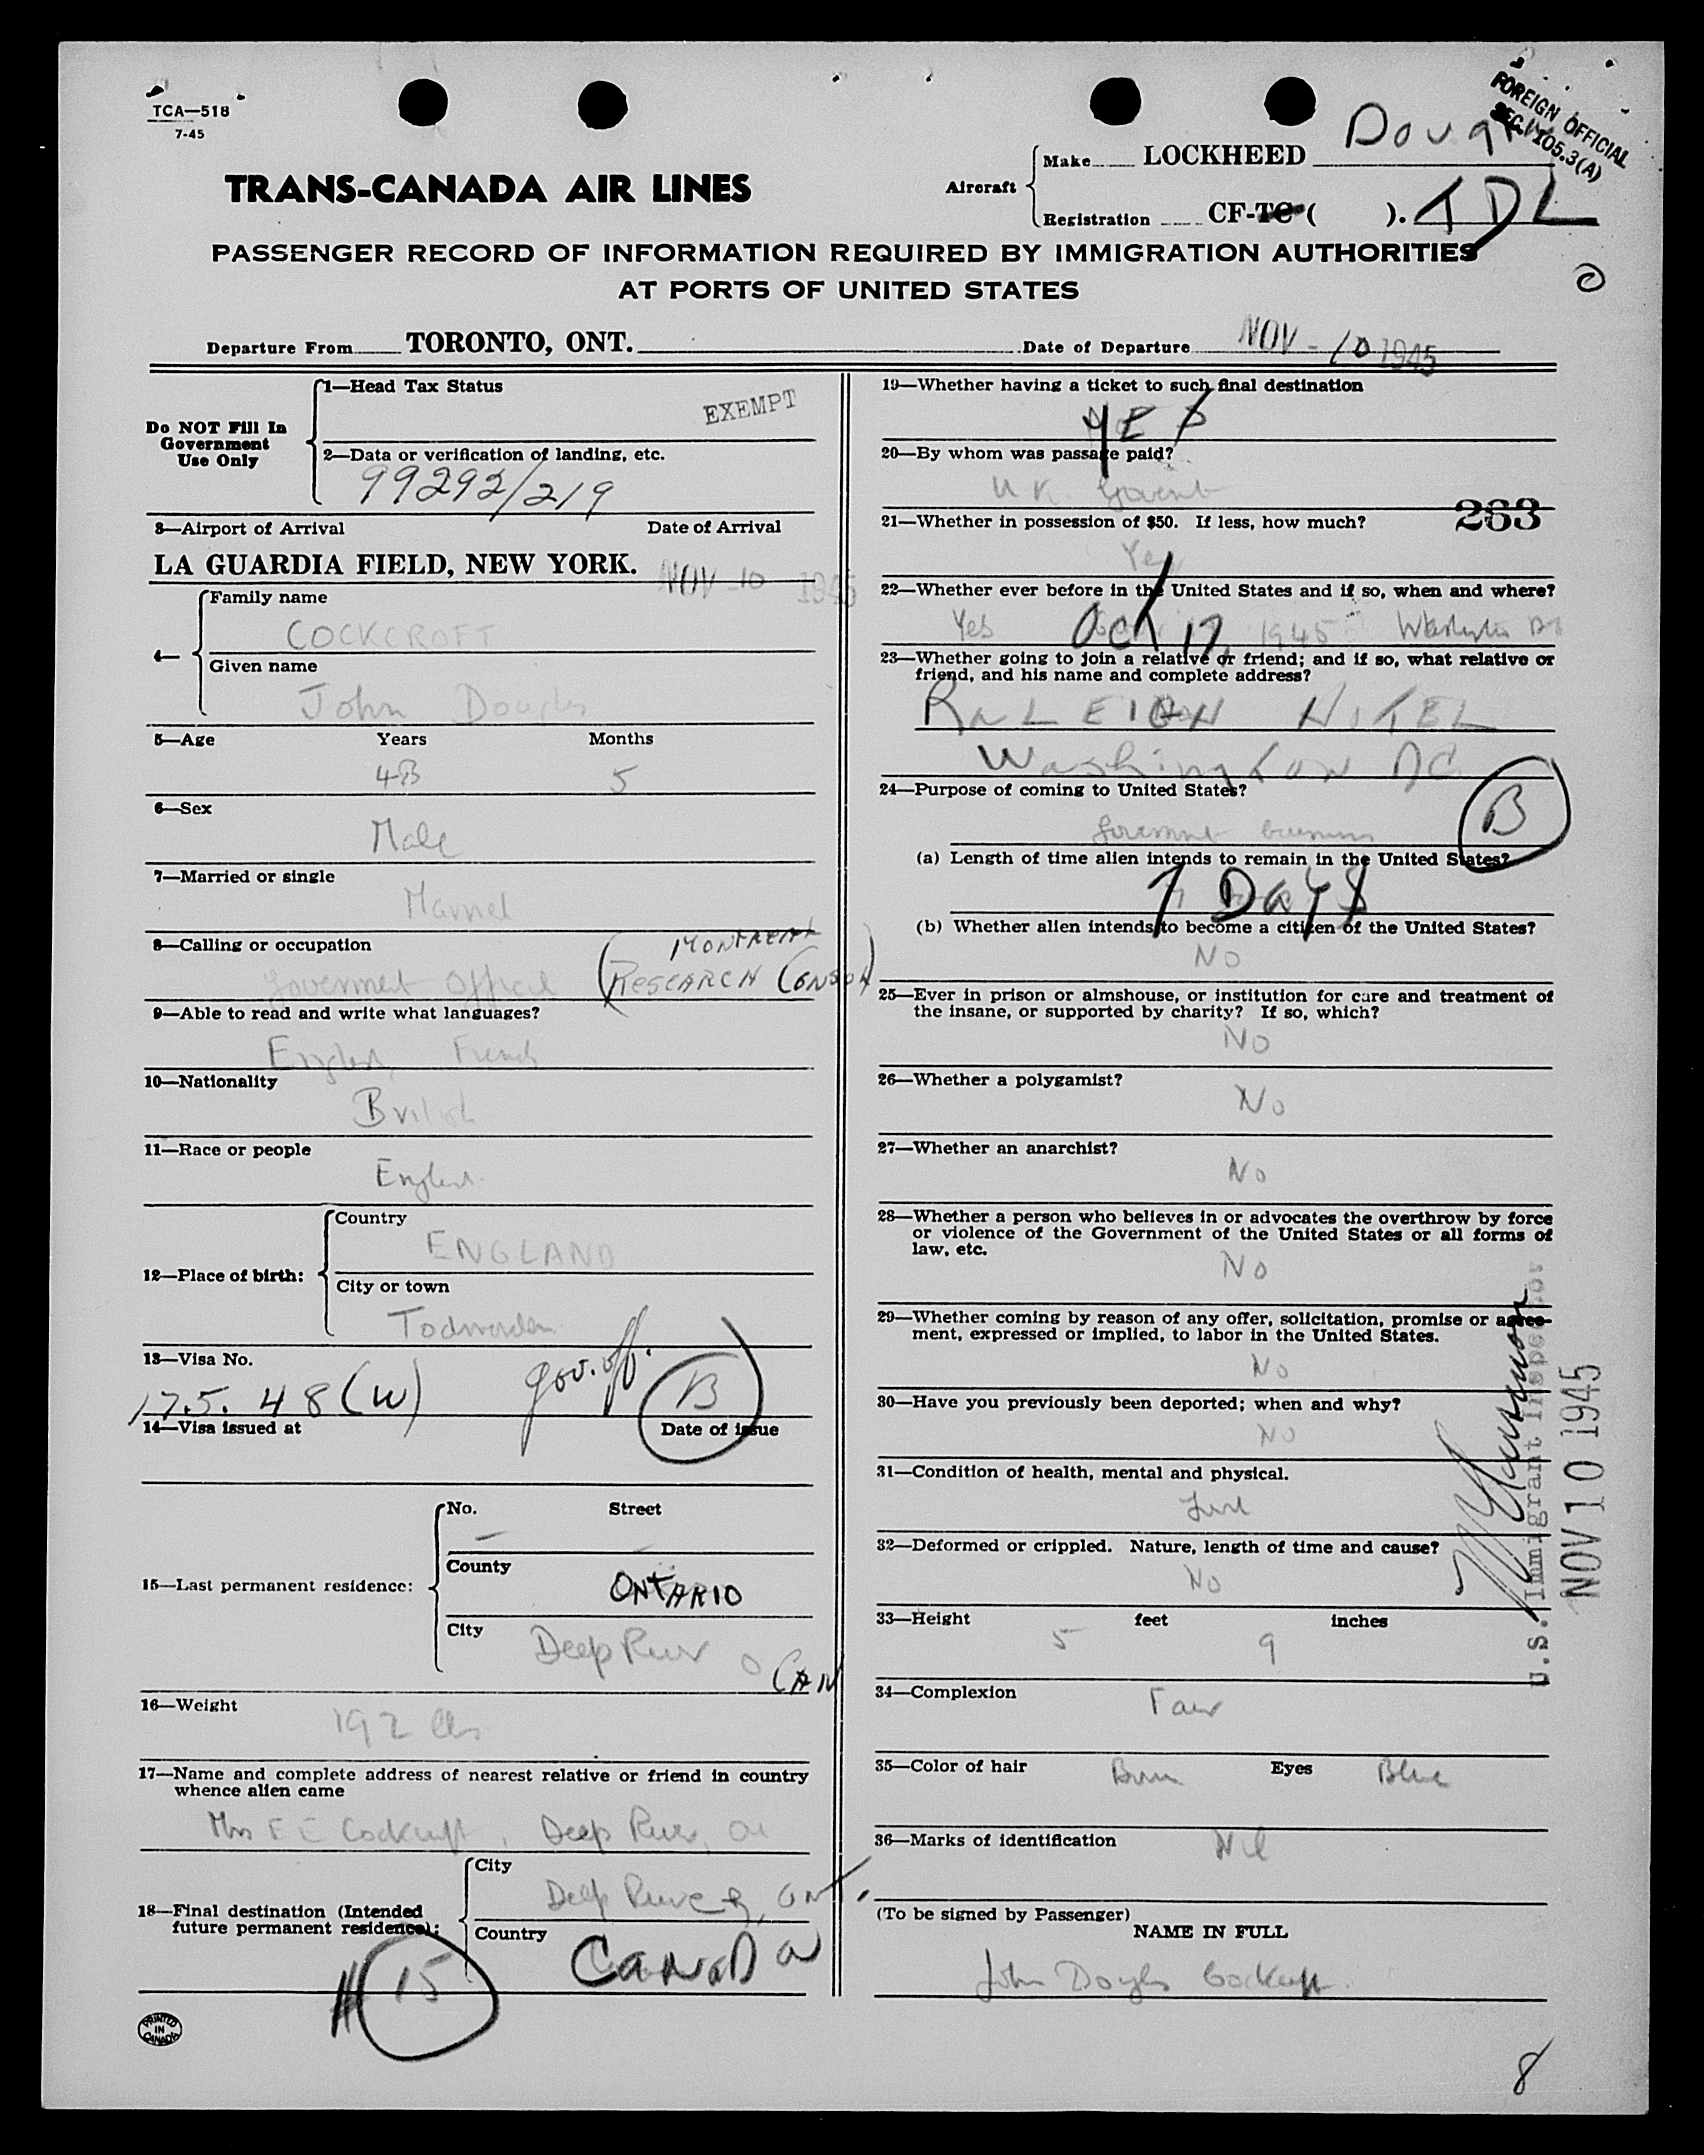 TCA—518
7-45
FOREIGN OFFICIAL
SEC. 105.3(A)
TRANS-CANADA AIR LINES
Aircraft
Make LOCKHEED
Registration CF-TC ( ). TDL
PASSENGER RECORD OF INFORMATION REQUIRED BY IMMIGRATION AUTHORITIES
AT PORTS OF UNITED STATES
Departure From TORONTO, ONT. Date of Departure NOV - 10 1945
Do NOT Fill In
Government
Use Only
1—Head Tax Status
EXEMPT
2—Data or verification of landing, etc.
99292/219
3—Airport of Arrival Date of Arrival
LA GUARDIA FIELD, NEW YORK. NOV 10 1945
4—
Family name
COCKCROFT
Given name
John Douglas
5—Age Years Months
48 5
6—Sex
Male
7—Married or single
Married
8—Calling or occupation
Government Official (MONTREAL
RESEARCH
9—Able to read and write what languages?
English, French
10—Nationality
British
11—Race or people
English
12—Place of birth:
Country
ENGLAND
City or town
Todmorden
13—Visa No.
175. 48 (W) gov. off. B
14—Visa issued at Date of issue
15—Last permanent residence:
No. Street
—
County
ONTARIO
City
Deep River O CAN
16—Weight
192 lbs
17—Name and complete address of nearest relative or friend in country
whence alien came
Mrs E E Cockcroft, Deep River, On
18—Final destination (Intended
future permanent residence):
City
Deep River, ONT.
Country
CANADA
15
PRINTED
IN
CANADA
19—Whether having a ticket to such final destination
YES
20—By whom was passage paid?
U K. Govent
263
21—Whether in possession of $50. If less, how much?
Yes
22—Whether ever before in the United States and if so, when and where?
Yes Oct 17, 1945 Washington DC
23—Whether going to join a relative or friend; and if so, what relative or
friend, and his name and complete address?
RALEIGH HOTEL
Washington DC
24—Purpose of coming to United States?
Government business B
(a) Length of time alien intends to remain in the United States?
7 DAYS
(b) Whether alien intends to become a citizen of the United States?
No
25—Ever in prison or almshouse, or institution for care and treatment of
the insane, or supported by charity? If so, which?
No
26—Whether a polygamist?
No
27—Whether an anarchist?
No
28—Whether a person who believes in or advocates the overthrow by force
or violence of the Government of the United States or all forms of
law, etc.
No
29—Whether coming by reason of any offer, solicitation, promise or agree-
ment, expressed or implied, to labor in the United States.
No
30—Have you previously been deported; when and why?
No
31—Condition of health, mental and physical.
32—Deformed or crippled. Nature, length of time and cause?
No
33—Height feet inches
5 9
34—Complexion
Fair
35—Color of hair Brown Eyes Blue
36—Marks of identification
Nil
(To be signed by Passenger)
NAME IN FULL
John Douglas Cockcroft
U.S. Immigrant Inspector
NOV 10 1945
8